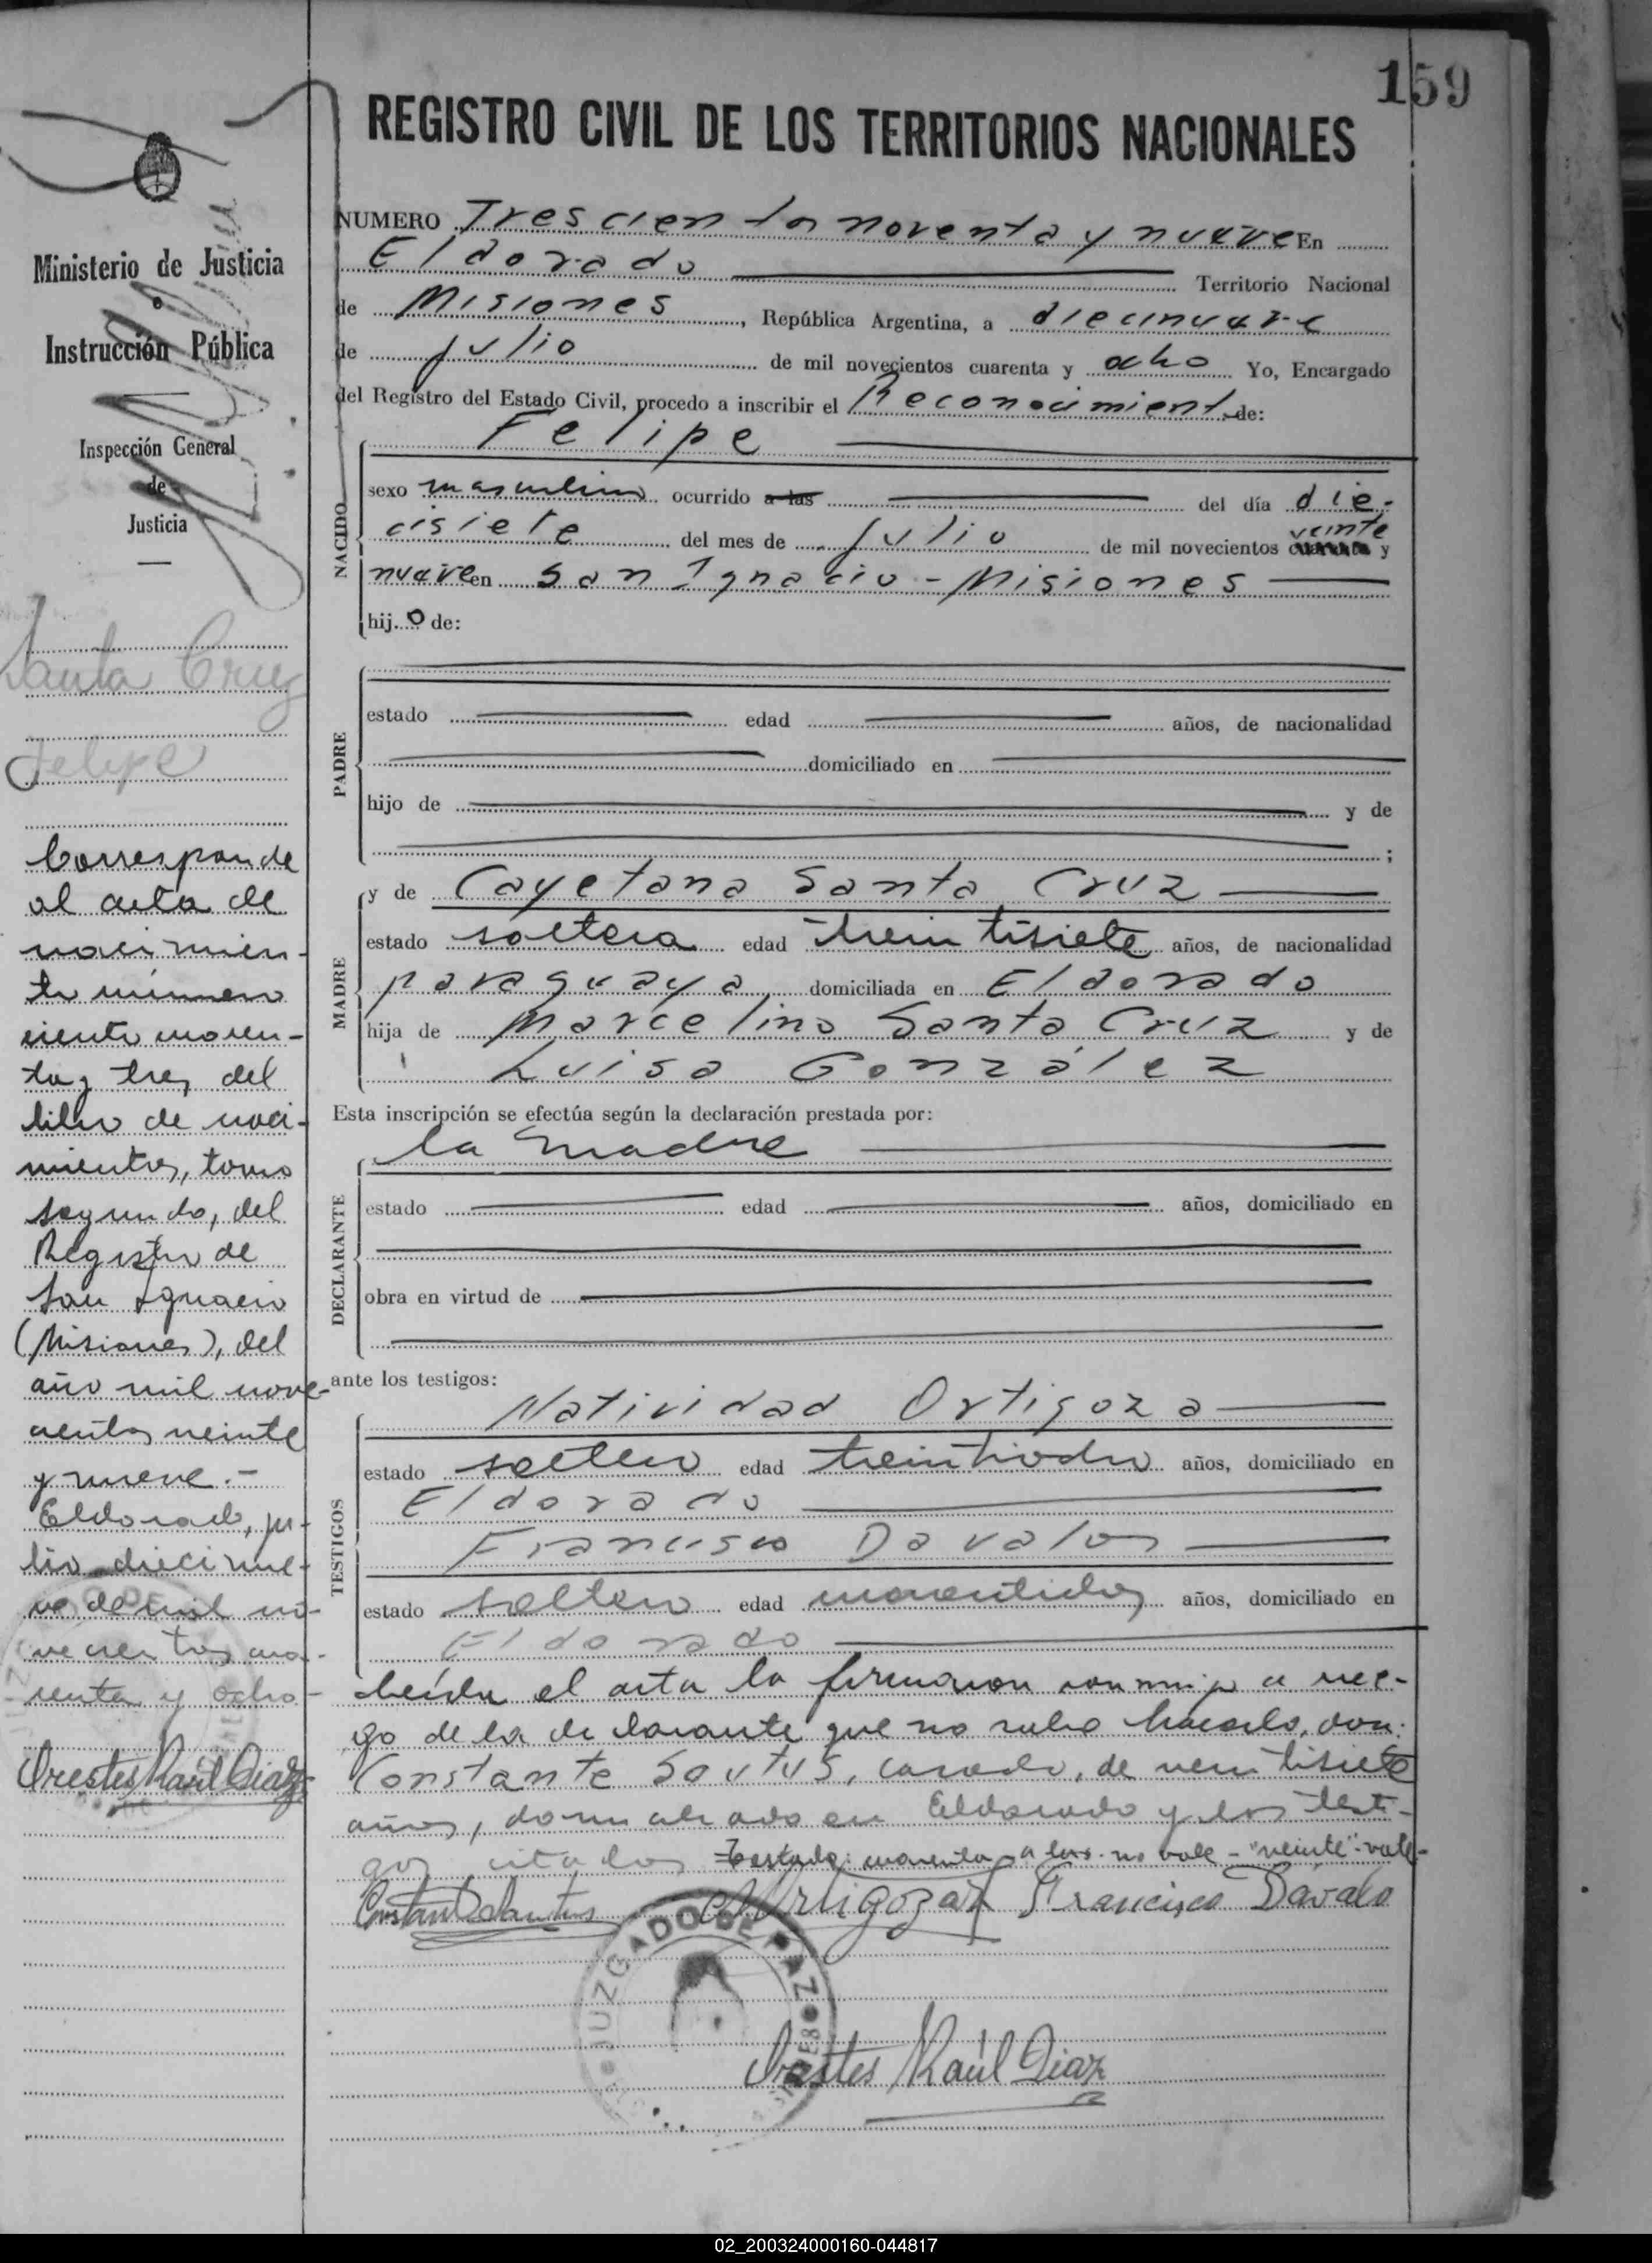 159
REGISTRO CIVIL DE LOS TERRITORIOS NACIONALES
Ministerio de Justicia
e
Instrucción Pública
Inspección General
de
Justicia
Santa Cruz
Felipe
Corresponde
al acta de
nacimien-
to número
ciento noven-
ta y tres del
libro de naci-
mientos, tomo
segundo, del
Registro de
San Ignacio
(Misiones), del
año mil nove-
cientos veinte
y nueve.-
Eldorado, ju-
lio diecinue-
ve de mil no-
vecientos cua-
renta y ocho-
Orestes Raúl Diaz
NUMERO Trescientos noventa y nueve En
Eldorado Territorio Nacional
de Misiones, República Argentina, a diecinueve
de julio de mil novecientos cuarenta y ocho Yo, Encargado
del Registro del Estado Civil, procedo a inscribir el Reconocimiento de:
NACIDO
Felipe
sexo masculino ocurrido a las del día die-
cisiete del mes de julio de mil novecientos veinte y
nueve en San Ignacio - Misiones
hijo de:
PADRE
estado edad años, de nacionalidad
domiciliado en
hijo de y de
;
MADRE
y de Cayetana Santa Cruz
estado soltera edad treintisiete años, de nacionalidad
paraguaya domiciliada en Eldorado
hija de Marcelino Santa Cruz y de
Luisa González
Esta inscripción se efectúa según la declaración prestada por:
DECLARANTE
la madre
estado edad años, domiciliado en
obra en virtud de
ante los testigos:
TESTIGOS
Natividad Ortigoza
estado soltero edad treintiocho años, domiciliado en
Eldorado
Francisco Davalos
estado soltero edad cuarentidos años, domiciliado en
Eldorado
Leída el acta la firmaron conmigo a rue-
go de la declarante que no sabe hacerlo, don:
Constante Sautus, casado, de veintisiete
años, domiciliado en Eldorado y los testi-
gos citados Testado: cuarenta, a las. no vale - "veinte": vale-
Constant Sautus Ortigoza Francisco Dávalo
JUZGADO DE PAZ
Orestes Raúl Diaz
02_200324000160-044817